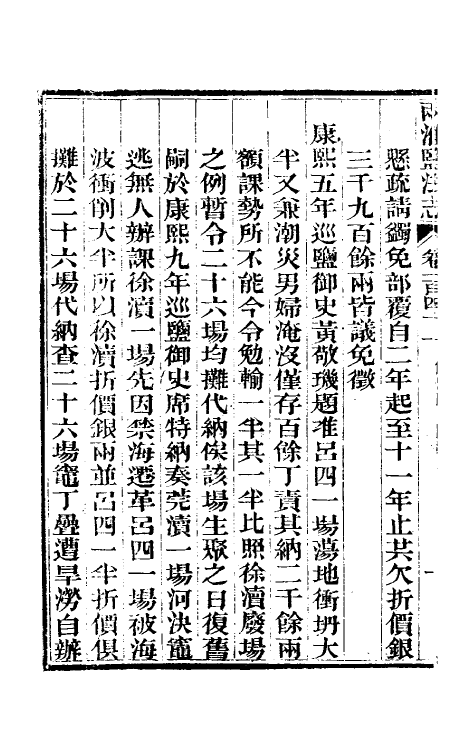 兩淮鹽法志
卷一百四
懸疏請蠲免部覆自二年起至十一年止共欠折價銀
三千九百餘兩皆議免徵
康熙五年巡鹽御史黃敬璣題准呂四一場蕩地衝坍大
半又兼潮災男婦淹沒僅存百餘丁責其納二千餘兩
額課勢所不能今令勉輸一半其一半比照徐瀆廢場
之例暫令二十六場均攤代納俟該場生聚之日復舊
嗣於康熙九年巡鹽御史席特納奏莞瀆一場河決竈
逃無人辦課徐瀆一場先因禁海遷革呂四一場被海
波衝削大半所以徐瀆折價銀兩並呂四一半折價俱
攤於二十六場代納查二十六場竈丁疊遭旱澇自辦